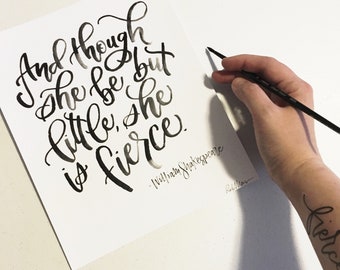 And though
she be but
little, she
is fierce.
-William Shakespeare
fierce